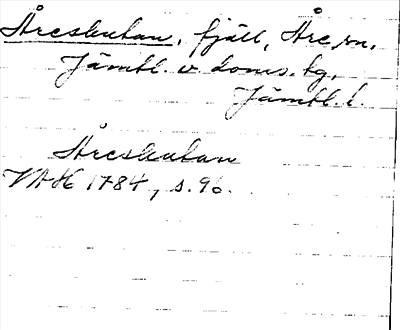 Åreskutan, fjäll, Åre sn,
Jämtl. v. doms. tg,
Jämtl. l.
Åreskutan
VAH 1784, s. 96.